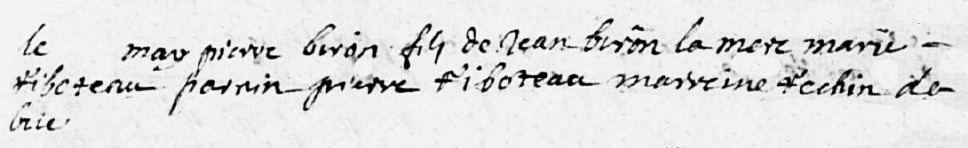 le may pierre biron fils de Jean biron la mere marie
Riboteau parain pierre Riboteau marreine